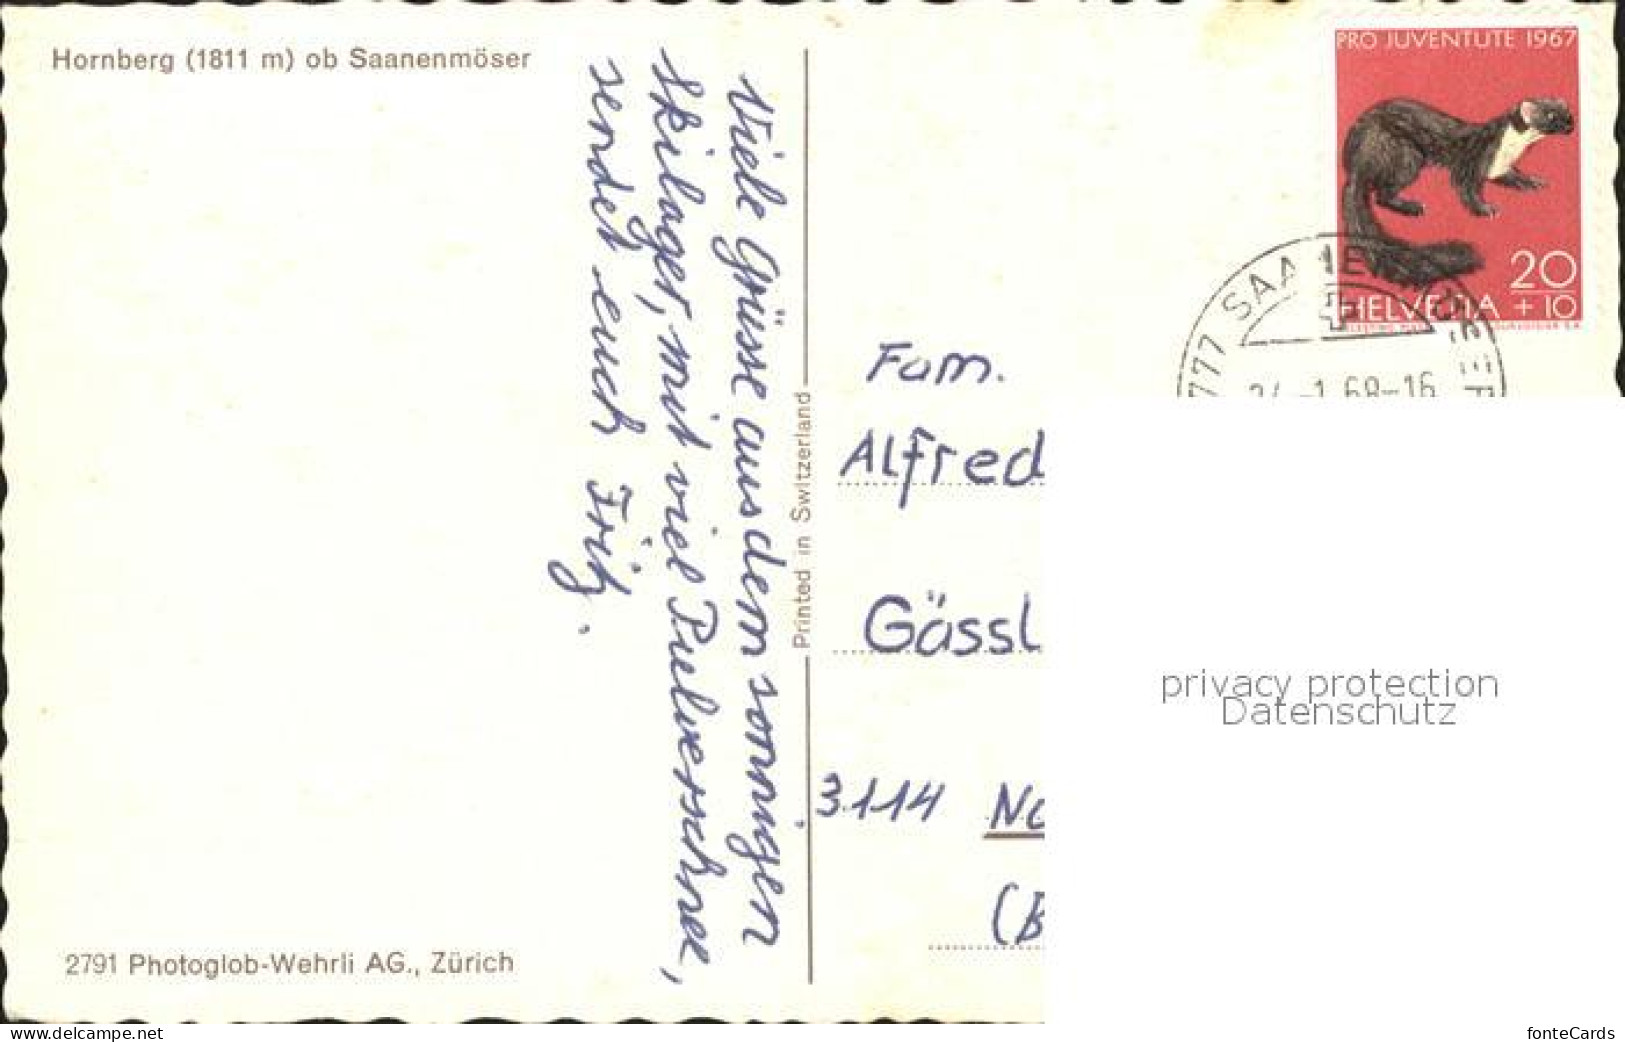 Hornberg (1811 m) ob Saanenmöser
Viele Grüsse aus dem sonnigen
Skilager, mit viel Pulverschnee,
sendet euch Fritz.
2791 Photoglob-Wehrli AG., Zürich
Printed in Switzerland
PRO JUVENTUTE 1967
20
HELVETIA + 10
3777 SAANENMÖSER
-1.68-16
Fam.
Alfred
Gässl
3114 No
(B
privacy protection
Datenschutz
www.delcampe.net
fonteCards